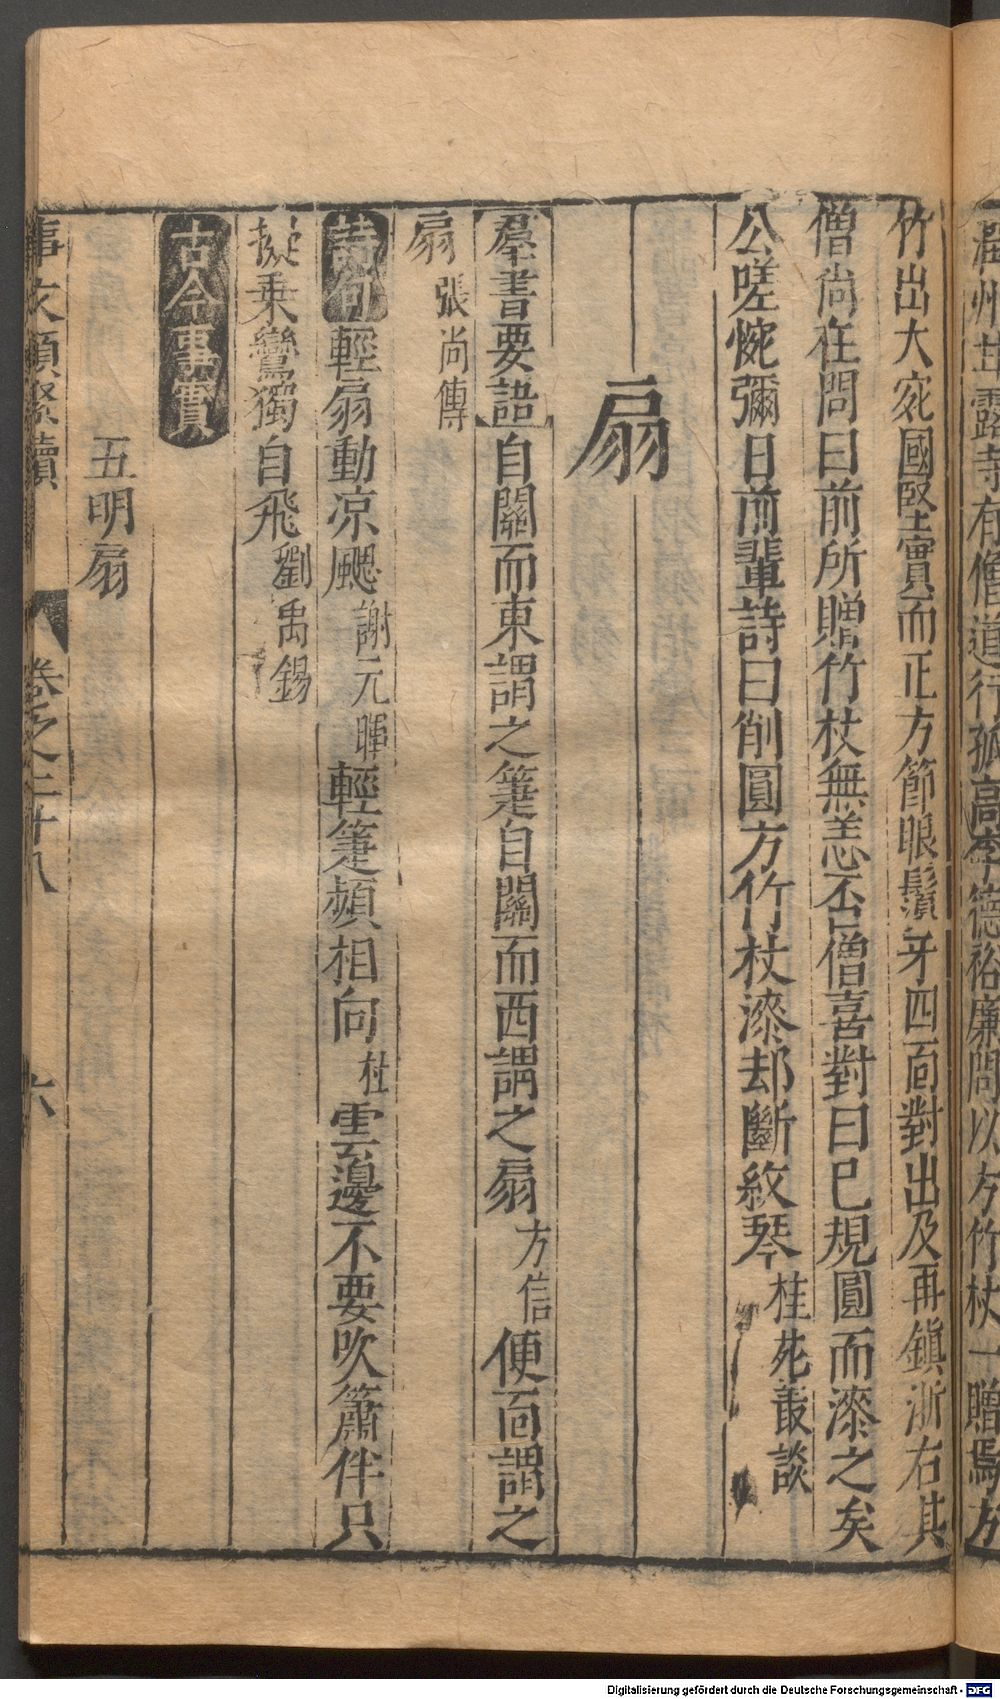 潤州甘露寺有僧道行孤高李德裕廉問以方竹杖一贈焉方
竹出大宛國堅實而正方節眼鬚牙四面對出及再鎭浙右其
僧尚在問曰前所贈竹杖無恙否僧喜對曰已規圓而漆之矣
公嗟惋彌日前輩詩曰削圓方竹杖漆却斷紋琴桂苑叢談
扇
羣書要語自關而東謂之箑自關而西謂之扇方信便面謂之
扇張尚傳
詩句輕扇動凉颸謝元暉輕箑頻相向杜雲邊不要吹簫伴只
擬乗鸞獨自飛劉禹錫
古今事實
五明扇
事文類聚續 卷之二十八 六
Digitalisierung gefördert durch die Deutsche Forschungsgemeinschaft - DFG